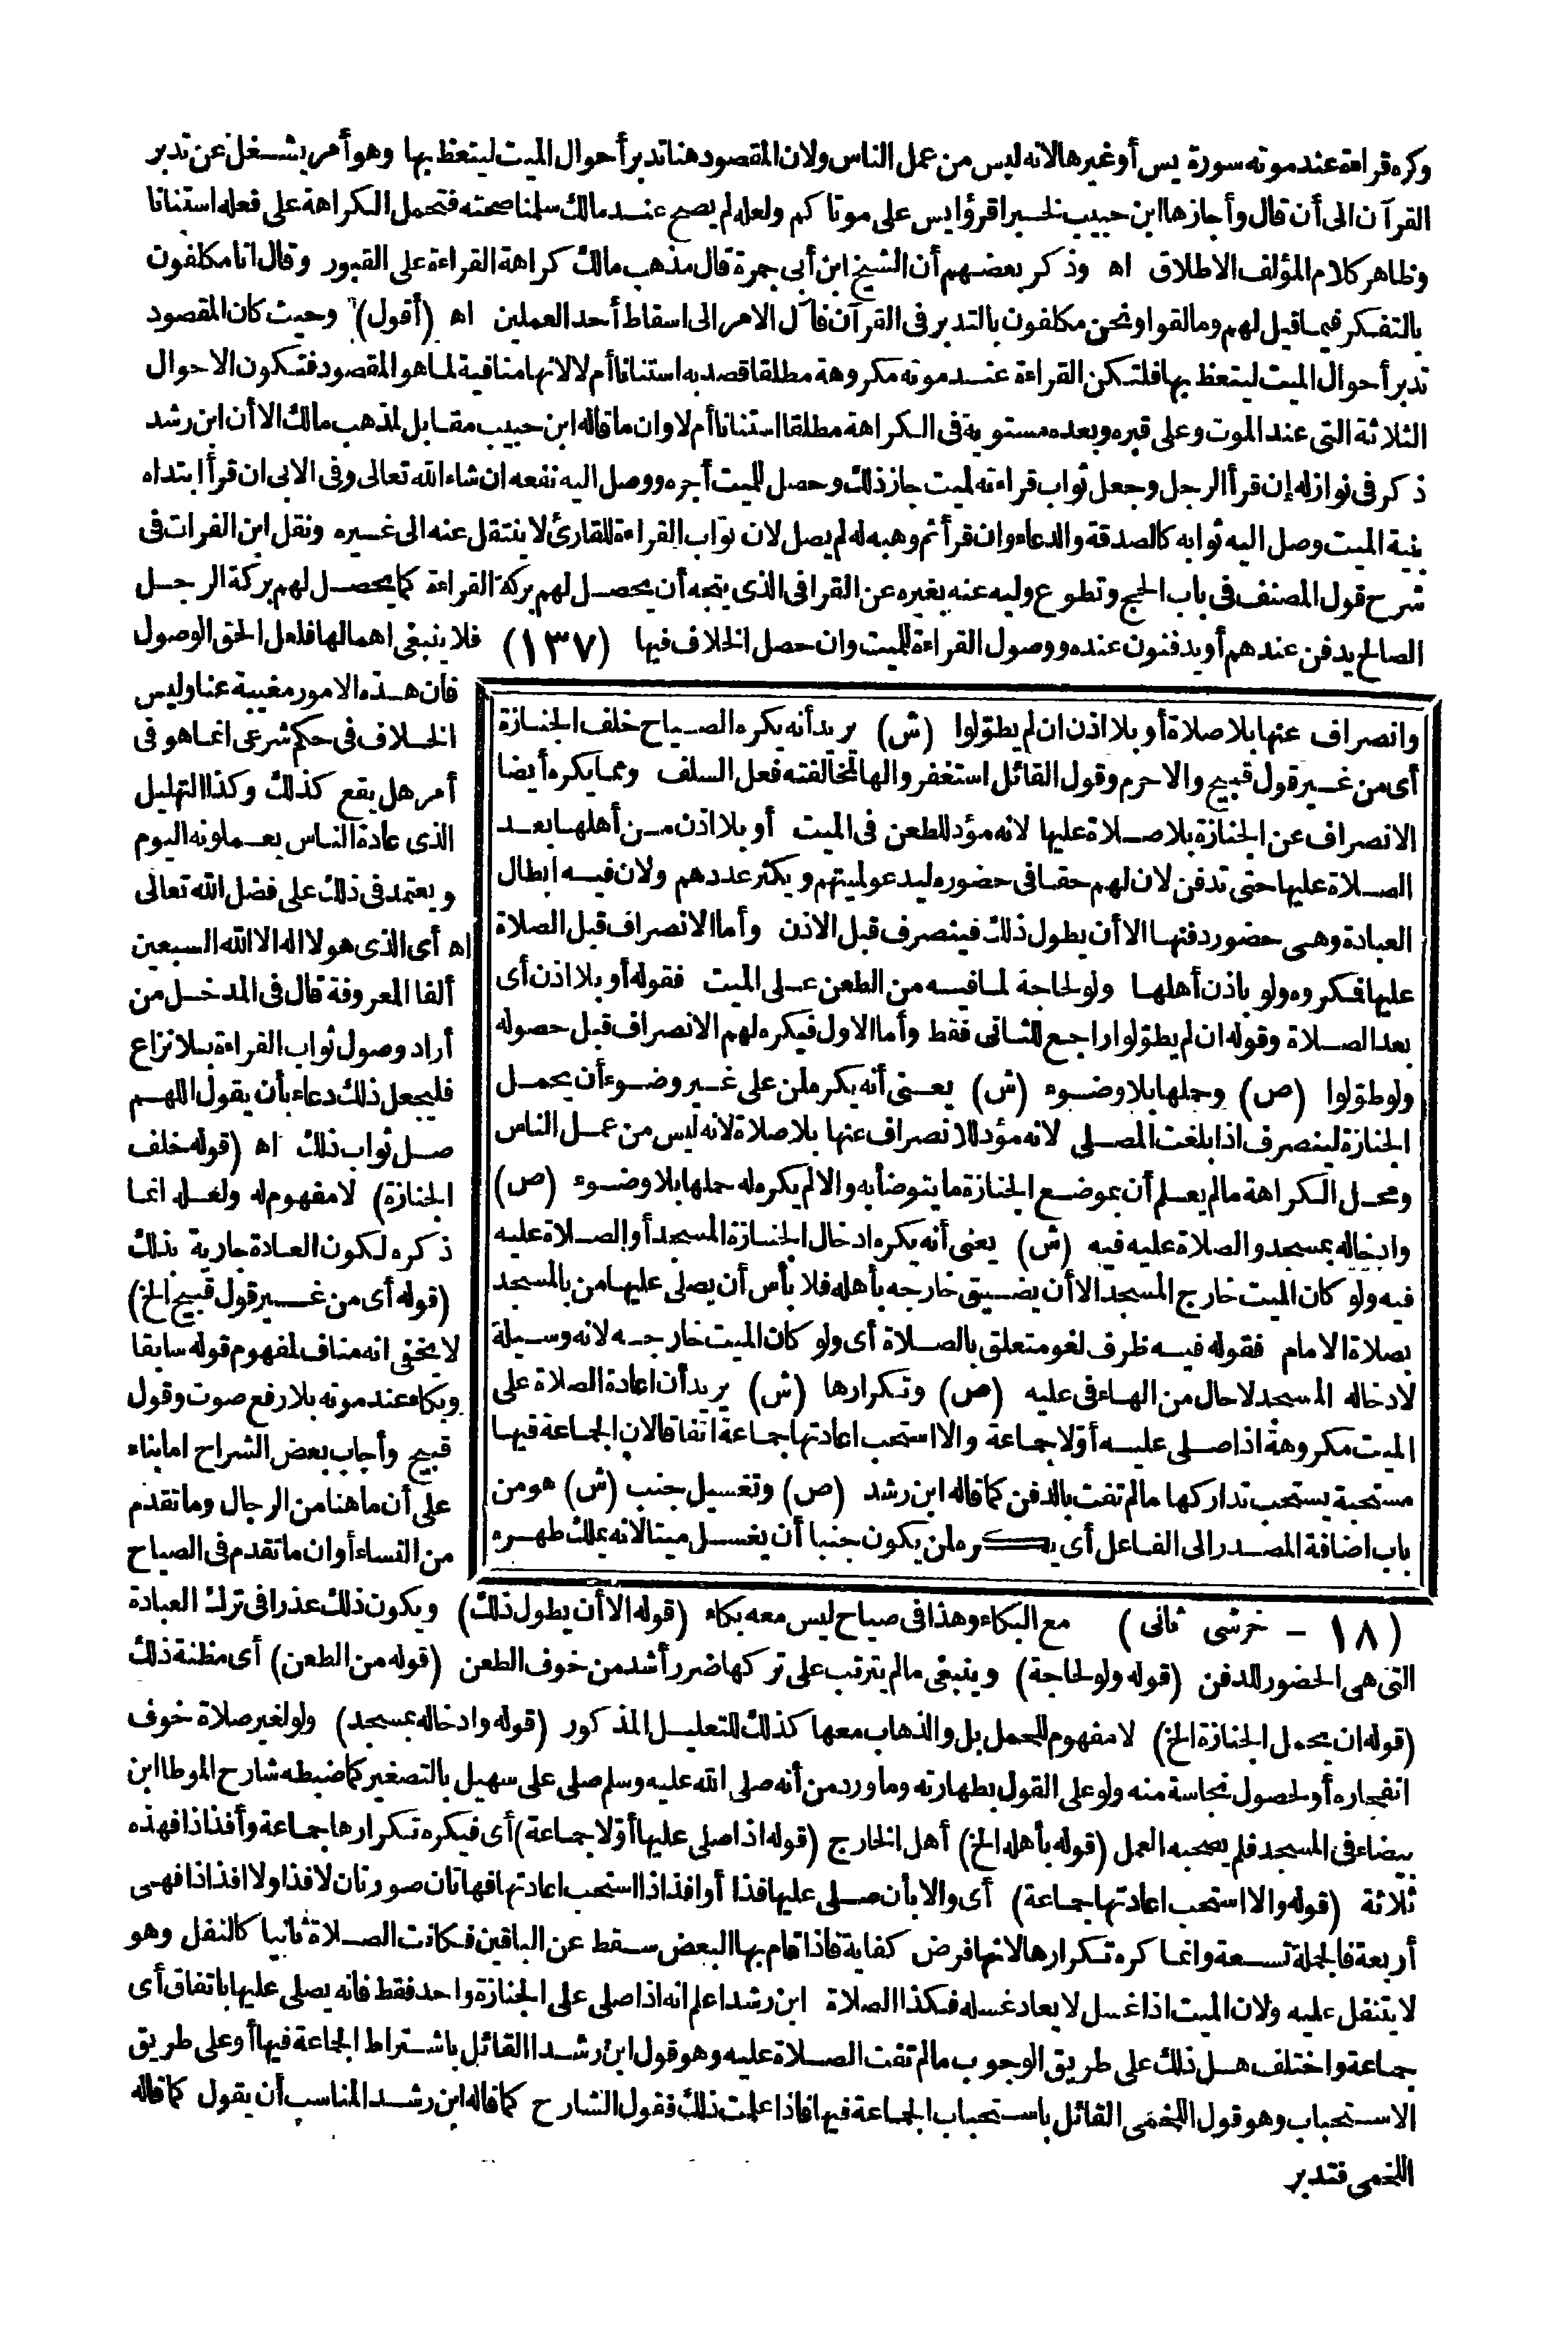 وكره قراءة عند موته سورة يس أو غيرها لانه ليس من عمل الناس ولان المقصود هنا تدبر أحوال الميت ليتعظ بها وهو أمر يشغل عن تدبر
القرآن الى أن قال وأجازها ابن حبيب لخبر اقرؤا يس على موتاكم ولعله لم يصح عند مالك سلمنا صحته فتحمل الكراهة على فعله استنانا
وظاهر كلام المؤلف الاطلاق اه وذكر بعضهم أن الشيخ ابن أبى جمرة قال مذهب مالك كراهة القراءة على القبور وقال انا مكلفون
بالتفكر فيما قيل لهم وما لقوا ونحن مكلفون بالتدبر فى القرآن فآل الامر الى اسقاط أحد العملين اه (أقول) وحيث كان المقصود
تدبر أحوال الميت ليتعظ بها فلتكن القراءة عند موته مكروهة مطلقا قصد به استنانا أم لا لانها منافية لما هو المقصود فتكون الاحوال
الثلاثة التى عند الموت وعلى قبره وبعده مستوية فى الكراهة مطلقا استنانا أم لا وان ما قاله ابن حبيب مقابل لمذهب مالك الا أن ابن رشد
ذكر فى نوازله إن قرأ الرجل وجعل ثواب قراءته لميت جاز ذلك وحصل للميت أجره ووصل اليه نفعه ان شاء الله تعالى وفى الابى ان قرأ ابتداء
بنية الميت وصل اليه ثوابه كالصدقة والدعاء وان قرأ ثم وهبه له لم يصل لان ثواب القراءة للقارئ لا ينتقل عنه الى غيره ونقل ابن الفرات فى
شرح قول المصنف فى باب الحج وتطوع وليه عنه بغيره عن القرافى الذى يتجه أن يحصل لهم بركة القراءة كما يحصل لهم بركة الرجل
الصالح يدفن عندهم أو يدفنون عنده ووصول القراءة للميت وان حصل الخلاف فيها (١٣٧) فلا ينبغى اهمالها فلعل الحق الوصول
فان هذه الامور مغيبة عنا وليس
الخلاف فى حكم شرعى انما هو فى
أمر هل يقع كذلك وكذا التهليل
الذى عادة الناس يعملونه اليوم
ويعتمد فى ذلك على فضل الله تعالى
اه أى الذى هو لا اله الا الله السبعين
ألفا المعروفة قال فى المدخل من
أراد وصول ثواب القراءة بلا نزاع
فليجعل ذلك دعاء بأن يقول اللهم
صل ثواب ذلك اه (قوله خلف
الجنازة) لا مفهوم له ولعله انما
ذكره لكون العادة جارية بذلك
(قوله أى من غير قول قبيح الخ)
لا يخفى انه مناف لمفهوم قوله سابقا
وبكاء عند موته بلا رفع صوت وقول
قبيح وأجاب بعض الشراح اما بناء
على أن ما هنا من الرجال وما تقدم
من النساء أو ان ما تقدم فى الصياح
وانصراف عنها بلا صلاة أو بلا اذن ان لم يطوّلوا (ش) يريد أنه يكره الصياح خلف الجنازة
أى من غير قول قبيح والا حرم وقول القائل استغفروا لها لمخالفته فعل السلف ومما يكره أيضا
الانصراف عن الجنازة بلا صلاة عليها لانه مؤد للطعن فى الميت أو بلا اذن من أهلها بعد
الصلاة عليها حتى تدفن لان لهم حقا فى حضوره ليدعو لميتهم ويكثر عددهم ولان فيه ابطال
العبادة وهى حضور دفنها الا أن يطول ذلك فينصرف قبل الاذن وأما الانصراف قبل الصلاة
عليها فمكروه ولو باذن أهلها ولو لحاجة لما فيه من الطعن على الميت فقوله أو بلا اذن أى
بعد الصلاة وقوله ان لم يطوّلوا راجع للثانى فقط وأما الاول فيكره لهم الانصراف قبل حصوله
ولو طوّلوا (ص) وحملها بلا وضوء (ش) يعنى أنه يكره لمن على غير وضوء أن يحمل
الجنازة لينصرف اذا بلغت المصلى لانه مؤد للانصراف عنها بلا صلاة لانه ليس من عمل الناس
ومحل الكراهة ما لم يعلم أن بموضع الجنازة ما يتوضأ به والا لم يكره له حملها بلا وضوء (ص)
وادخاله بمسجد والصلاة عليه فيه (ش) يعنى أنه يكره ادخال الجنازة المسجد أو الصلاة عليه
فيه ولو كان الميت خارج المسجد الا أن يضيق خارجه بأهله فلا بأس أن يصلى عليها من بالمسجد
بصلاة الامام فقوله فيه ظرف لغو متعلق بالصلاة أى ولو كان الميت خارجه لانه وسيلة
لادخاله المسجد لا حال من الهاء فى عليه (ص) وتكرارها (ش) يريد أن اعادة الصلاة على
الميت مكروهة اذا صلى عليه أوّلا جماعة والا استحب اعادتها جماعة اتفاقا لان الجماعة فيها
مستحبة يستحب تداركها ما لم تفت بالدفن كما قاله ابن رشد (ص) وتغسيل جنب (ش) هو من
باب اضافة المصدر الى الفاعل أى يكره لمن يكون جنبا أن يغسل ميتا لانه يملك طهره
(١٨ - خرشى ثانى) مع البكاء وهذا فى صياح ليس معه بكاء (قوله الا أن يطول ذلك) ويكون ذلك عذرا فى ترك العبادة
التى هى الحضور للدفن (قوله ولو لحاجة) وينبغى ما لم يترتب على تركها ضرر أشد من خوف الطعن (قوله من الطعن) أى مظنة ذلك
(قوله ان يحمل الجنازة الخ) لا مفهوم للحمل بل والذهاب معها كذلك للتعليل المذكور (قوله وادخاله بمسجد) ولو لغير صلاة خوف
انفجاره أو لحصول نجاسة منه ولو على القول بطهارته وما ورد من أنه صلى الله عليه وسلم صلى على سهيل بالتصغير كما ضبطه شارح الموطا ابن
بيضاء فى المسجد فلم يصحبه العمل (قوله بأهله الخ) أهل الخارج (قوله اذا صلى عليها أوّلا جماعة) أى فيكره تكرارها جماعة وأفذاذا فهذه
ثلاثة (قوله والا استحب اعادتها جماعة) أى والا بأن صلى عليها فذا أو افذاذا استحب اعادتها فهاتان صورتان لا فذا ولا افذاذا فهى
أربعة فالجملة تسعة وانما كره تكرارها لانها فرض كفاية فاذا قام بها البعض سقط عن الباقين فكانت الصلاة ثانيا كالنفل وهو
لا يتنفل عليه ولان الميت اذا غسل لا يعاد غسله فكذا الصلاة ابن رشد اعلم انه اذا صلى على الجنازة واحد فقط فانه يصلى عليها باتفاق أى
جماعة واختلف هل ذلك على طريق الوجوب ما لم تفت الصلاة عليه وهو قول ابن رشد القائل باشتراط الجماعة فيها أو على طريق
الاستحباب وهو قول اللخمى القائل باستحباب الجماعة فيها فاذا علمت ذلك فقول الشارح كما قاله ابن رشد المناسب أن يقول كما قاله
اللخمى فتدبر